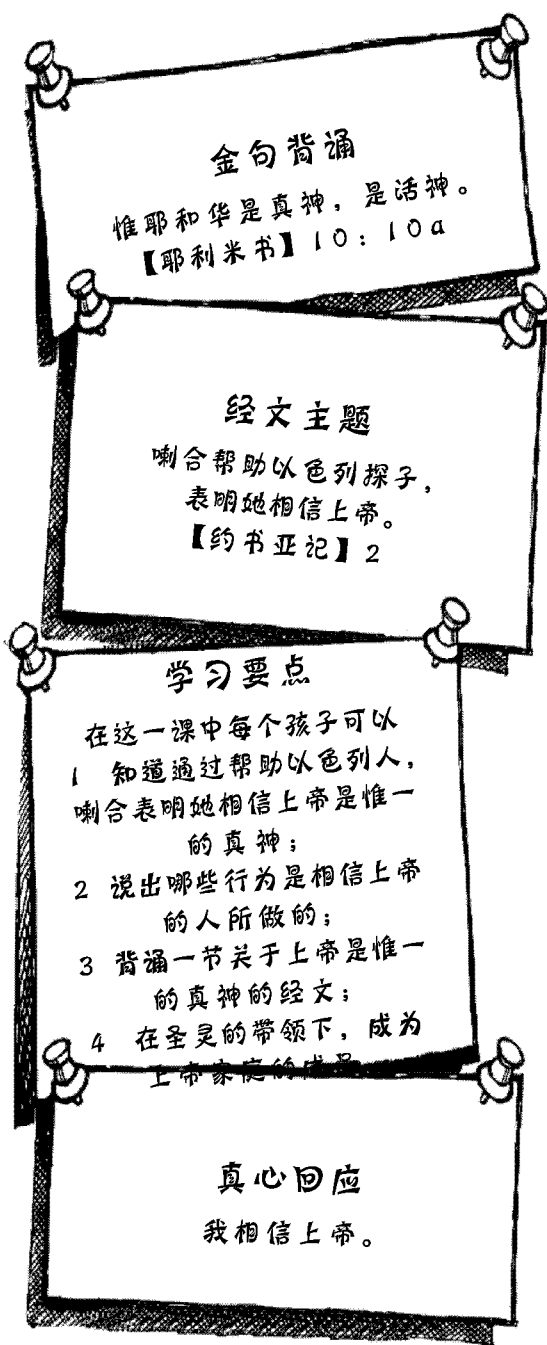 金句背诵
惟耶和华是真神，是活神。
【耶利米书】10：10a
经文主题
喇合帮助以色列探子，
表明她相信上帝。
【约书亚记】2
学习要点
在这一课中每个孩子可以
1 知道通过帮助以色列人，
喇合表明她相信上帝是惟一
的真神；
2 说出哪些行为是相信上帝
的人所做的；
3 背诵一节关于上帝是惟一
的真神的经文；
4 在圣灵的带领下，成为
上帝家庭的成员
真心回应
我相信上帝。